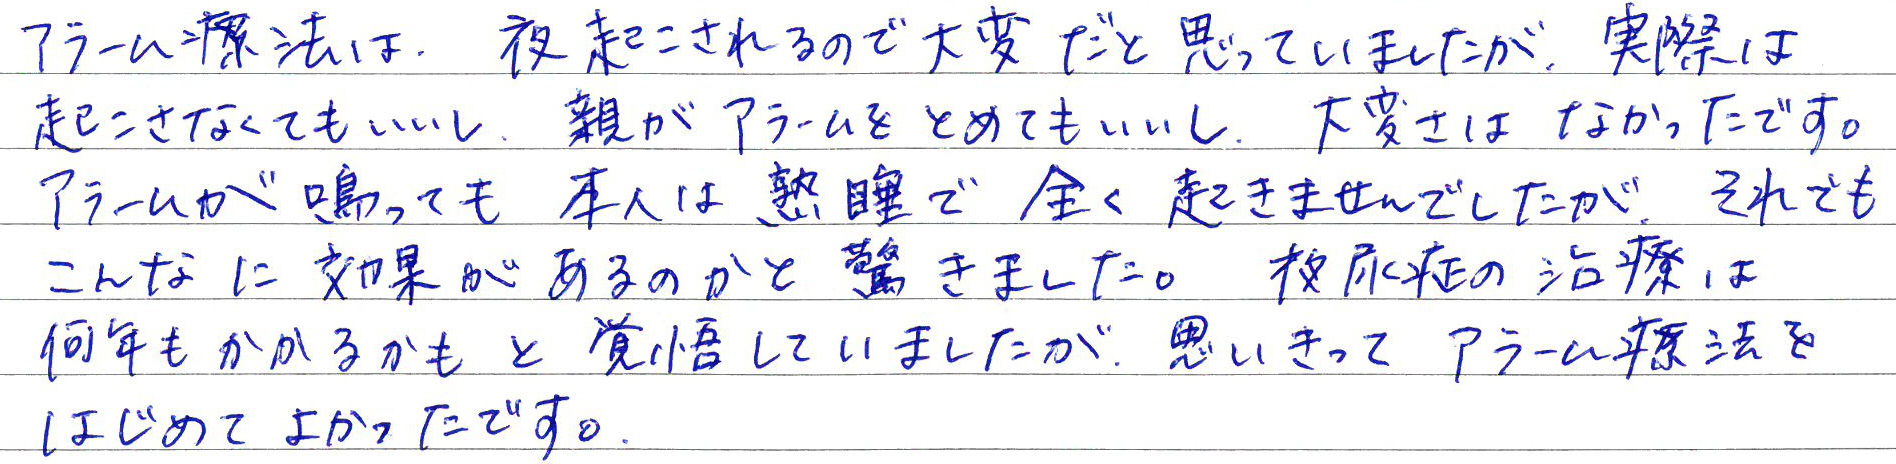 アラーム療法は、夜起こされるので大変だと思っていましたが、実際は
起こさなくてもいいし、親がアラームをとめてもいいし、大変さはなかったです。
アラームが鳴っても本人は熟睡で全く起きませんでしたが、それでも
こんなに効果があるのかと驚きました。夜尿症の治療は
何年もかかるかもと覚悟していましたが、思いきってアラーム療法を
はじめてよかったです。